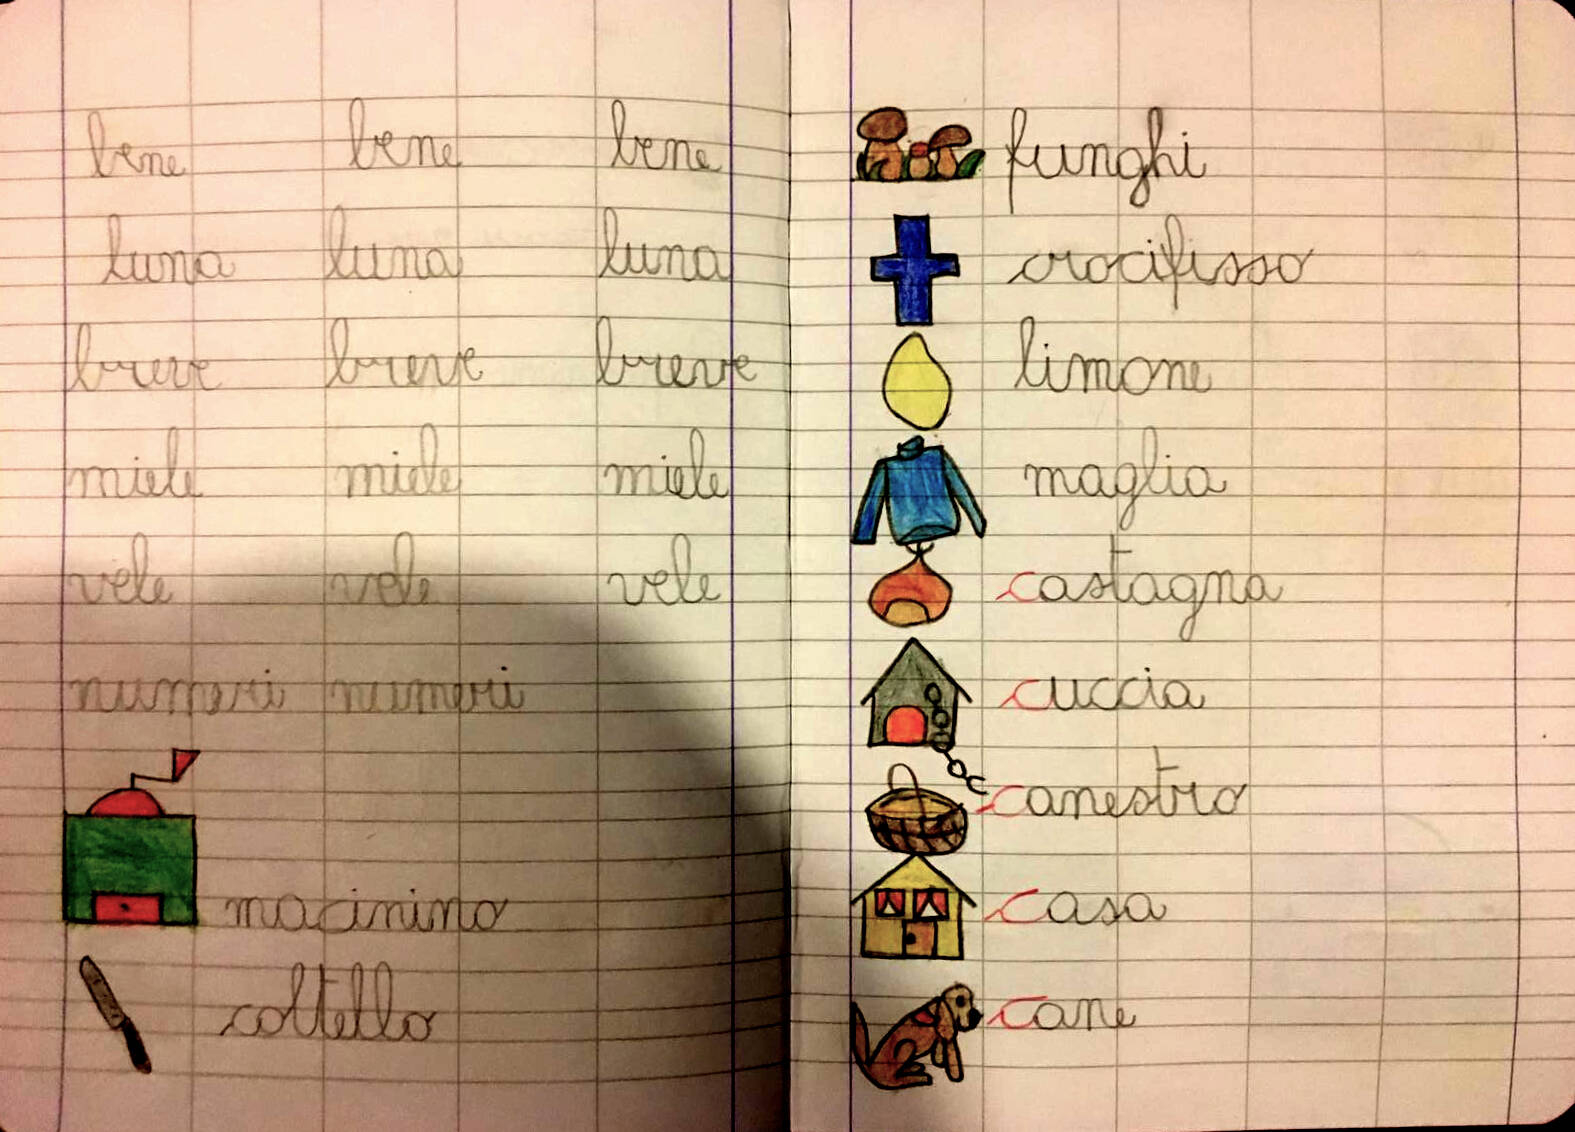 bene bene bene
luna luna luna
breve breve breve
miele miele miele
vele vele vele
numeri numeri
macinino
coltello
funghi
crocifisso
limone
maglia
castagna
cuccia
canestro
casa
cane